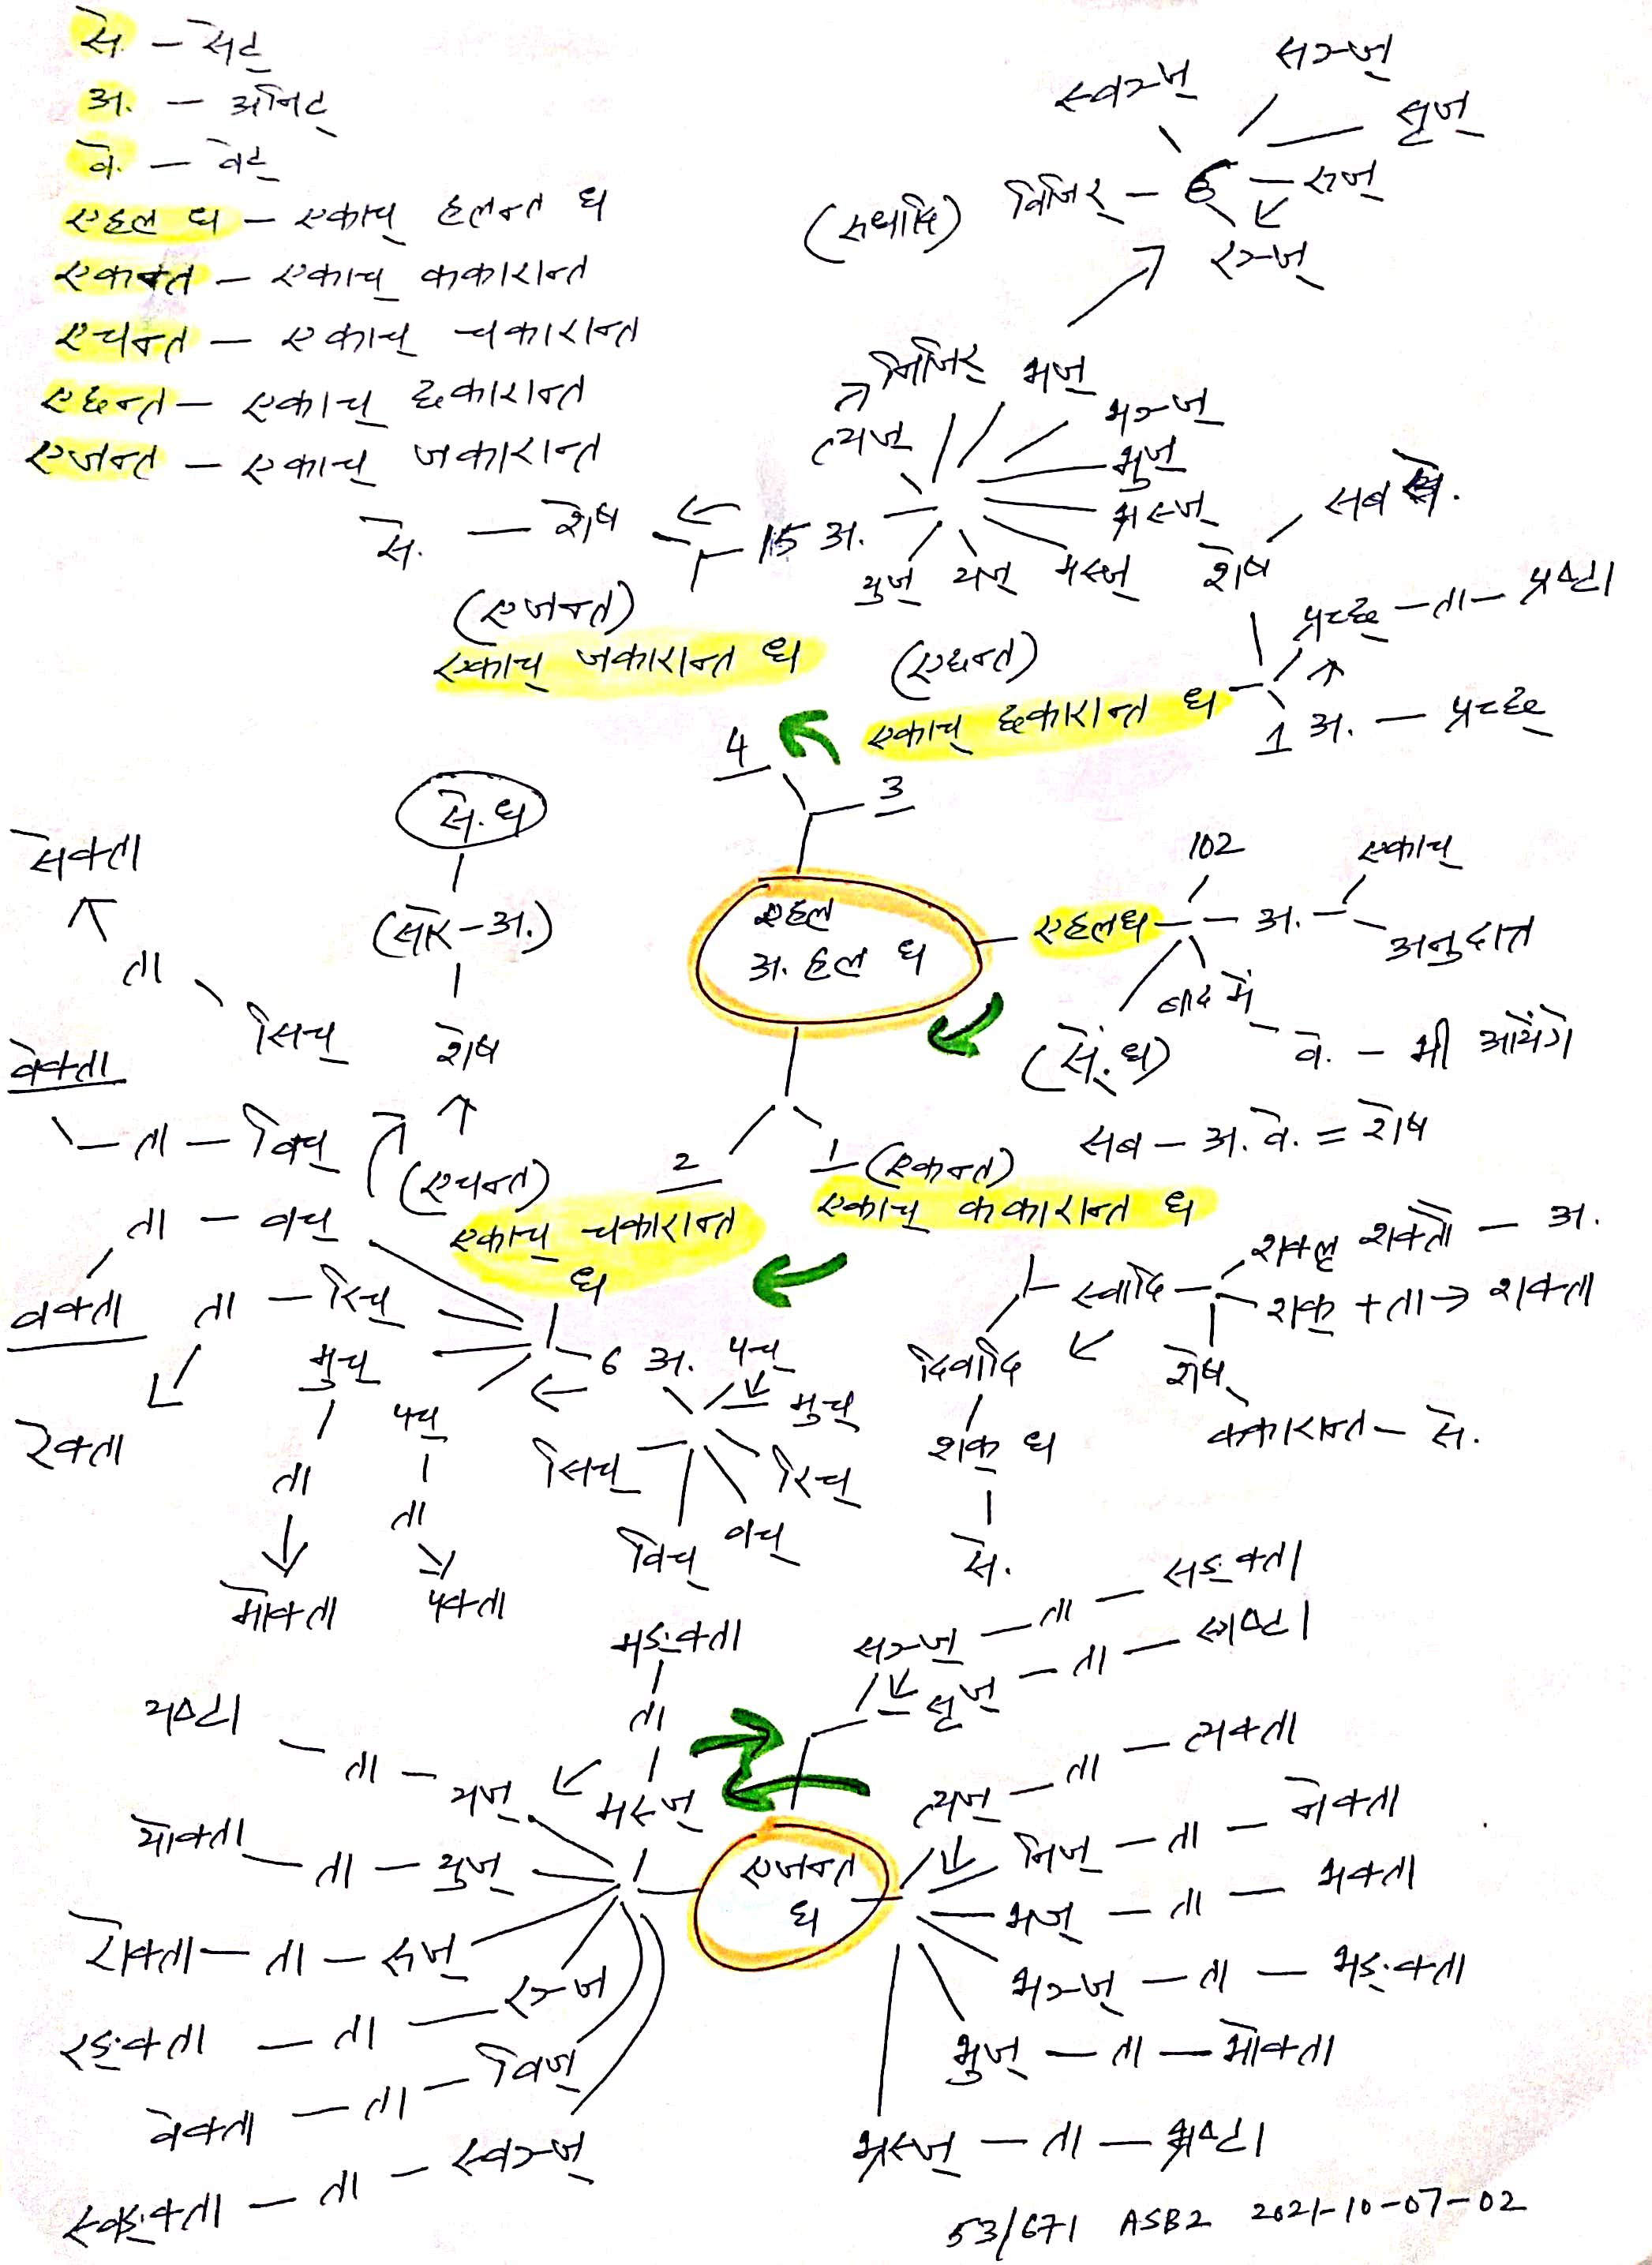 से. – सेट्
अ. – अनिट्
वे. – वेट्
एहल ध – एकाच् हलन्त ध
एकन्त – एकाच् ककारान्त
एचन्त – एकाच् चकारान्त
एछन्त – एकाच् छकारान्त
एजन्त – एकाच् जकारान्त
सञ्ज्
स्वञ्ज्
सृज्
(रुधादि) विजिर् – 6 – रुज्
रञ्ज्
निजिर् भज्
त्यज् भञ्ज्
भुज्
से. – शेष 15 अ. भ्रस्ज्
युज् यज् मस्ज्
शेष सब से.
(एजन्त)
एकाच् जकारान्त ध
प्रच्छ् – ता – प्रष्टा
(एछन्त)
एकाच् छकारान्त ध
1 अ. – प्रच्छ्
4
3
से. ध
(सेर – अ.)
शेष
एहल
अ. हल ध
एहलध – अ. – एकाच्
102
अनुदात्त
बाद में
वे. – भी आयेंगे
(से. ध)
सब – अ. वे. = शेष
सेक्ता
ता
सिच्
वेक्ता
ता – विच्
ता – वच्
वक्ता
ता – रिच्
रेक्ता
मुच्
ता
मोक्ता
पच्
ता
पक्ता
2
(एचन्त)
एकाच् चकारान्त
ध
6 अ. पच्
मुच्
रिच्
वच्
विच्
सिच्
1 (एकन्त)
एकाच् ककारान्त ध
स्वादि – शक्लृ शक्तौ – अ.
शक् + ता → शक्ता
शेष
ककारान्त – से.
दिवादि
शक् ध
से.
सञ्ज् – ता – सङ्क्ता
सृज् – ता – स्रष्टा
मङ्क्ता
ता
मस्ज्
यष्टा – ता – यज्
योक्ता – ता – युज्
रोक्ता – ता – रुज्
रङ्क्ता – ता – रञ्ज
वेक्ता – ता – विज्
स्वङ्क्ता – ता – स्वञ्ज्
एजन्त
ध
त्यज् – ता – त्यक्ता
निज् – ता – नेक्ता
भज् – ता – भक्ता
भञ्ज् – ता – भङ्क्ता
भुज् – ता – भोक्ता
भ्रस्ज् – ता – भ्रष्टा
53/671 ASB2 2021-10-07-02